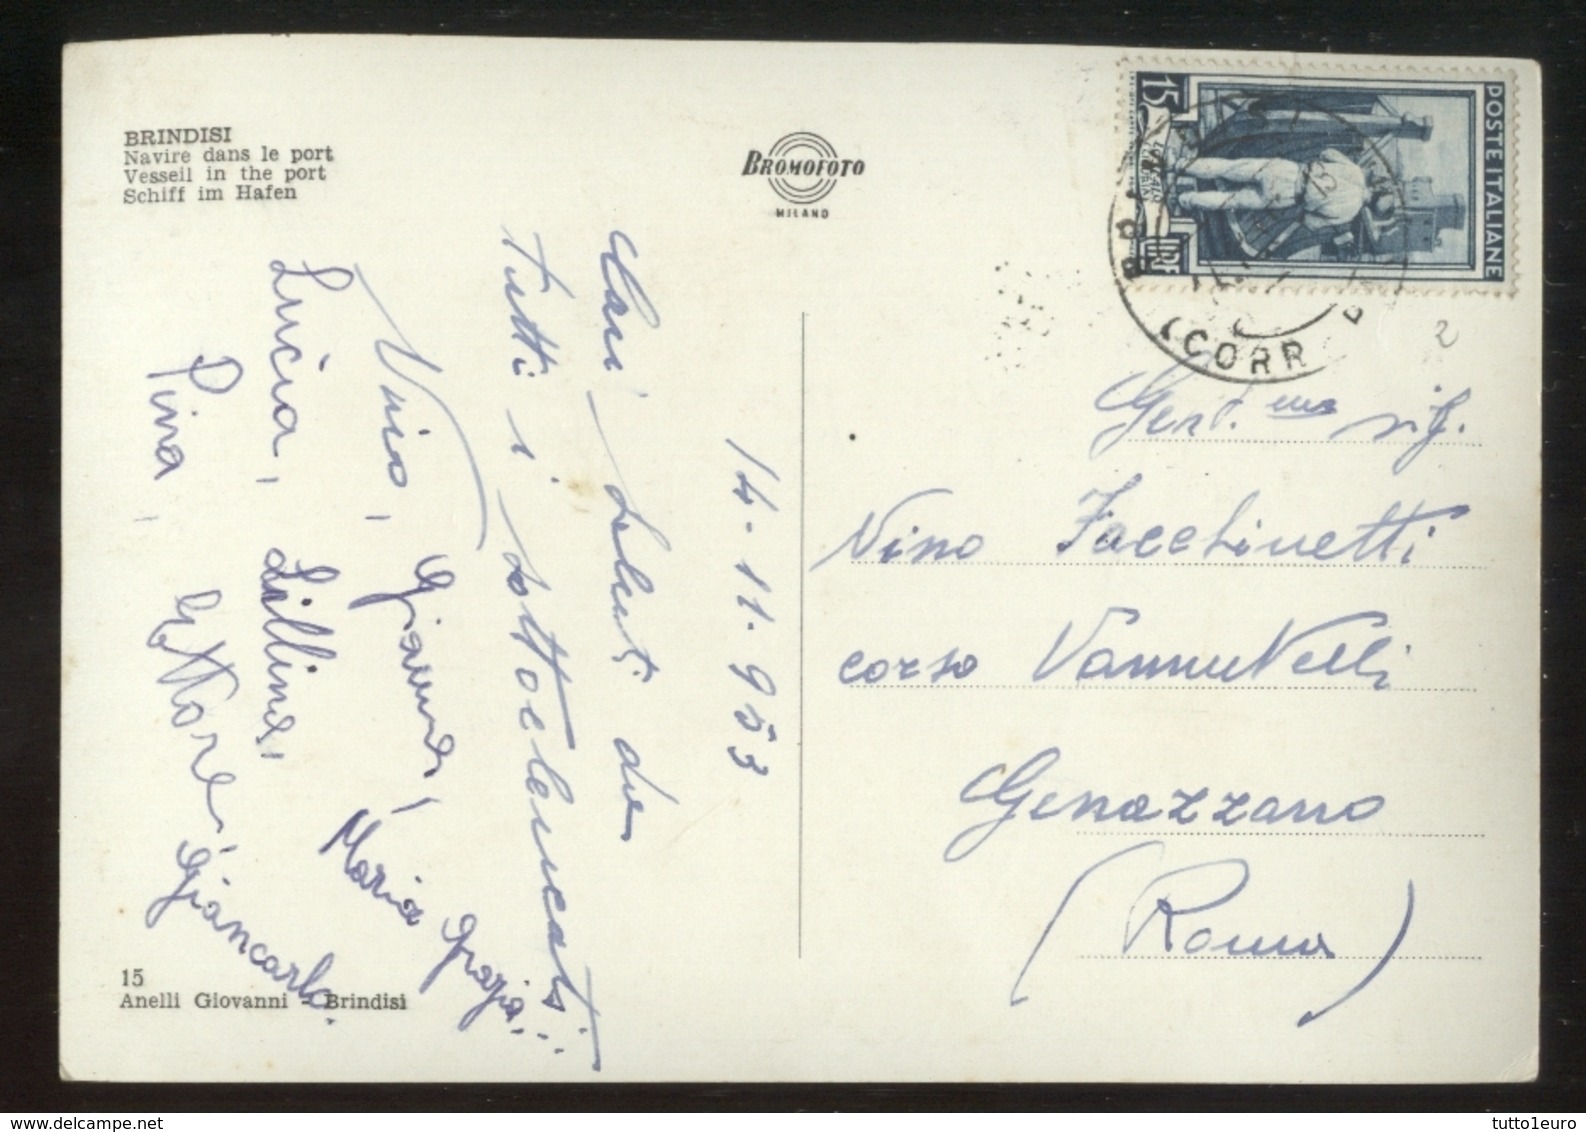 BRINDISI
Navire dans le port
Vesseil in the port
Schiff im Hafen
BROMOFOTO
MILANO
15
LIRE
POSTE ITALIANE
(CORR
2
14-11-953
Cari saluti da
tutti i sottoelencati
Vino, Gianna, Maria Grazia...
Lucia, Lillina,
Pina, Ettore, Giancarlo.
Gent.mo sig.
Nino Facchinetti
corso Vannutelli
Genazzano
(Roma)
15
Anelli Giovanni - Brindisi
tutto1euro